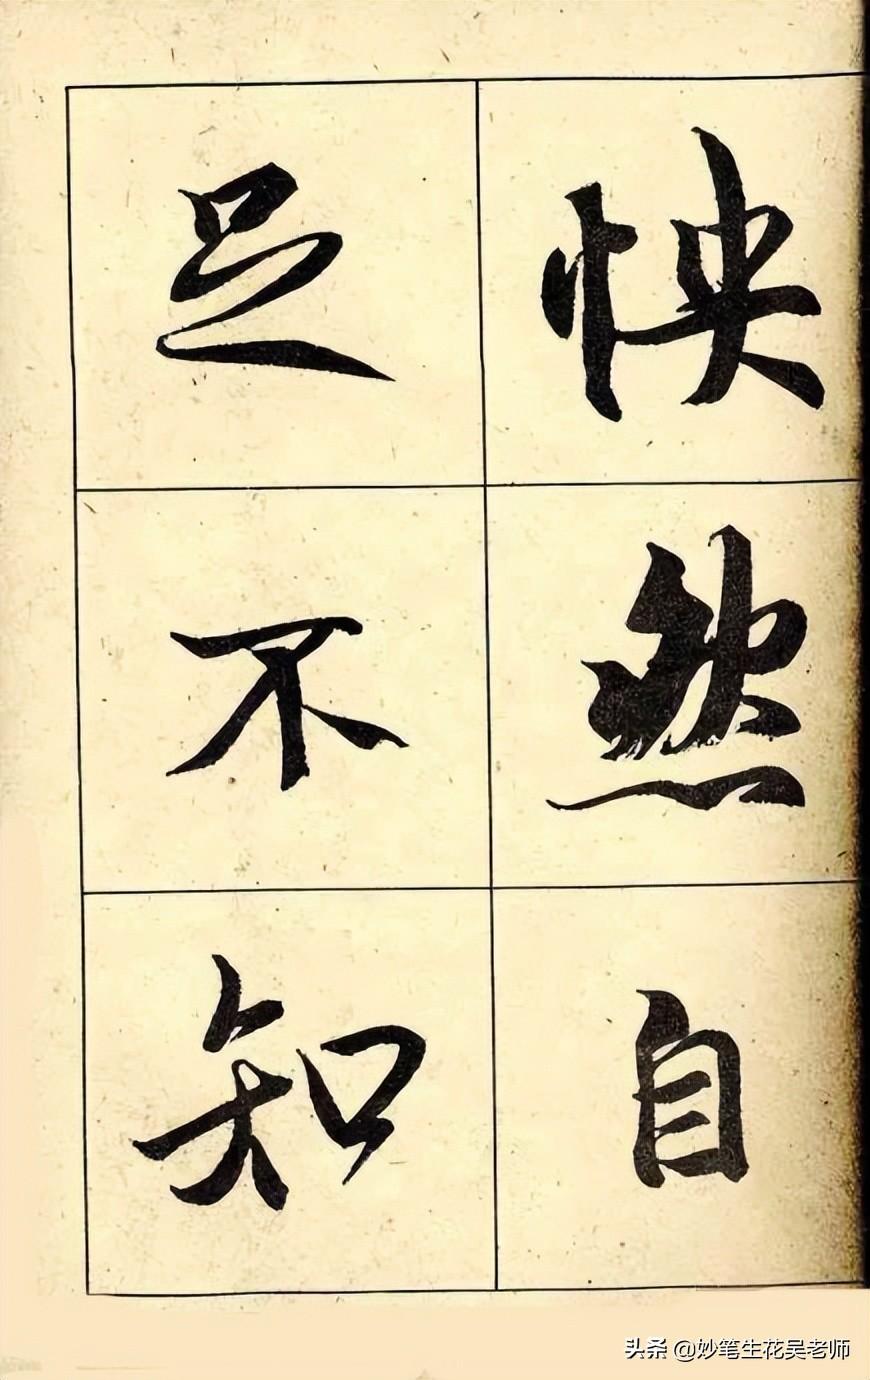 怏然自
足不知
头条 @妙笔生花吴老师